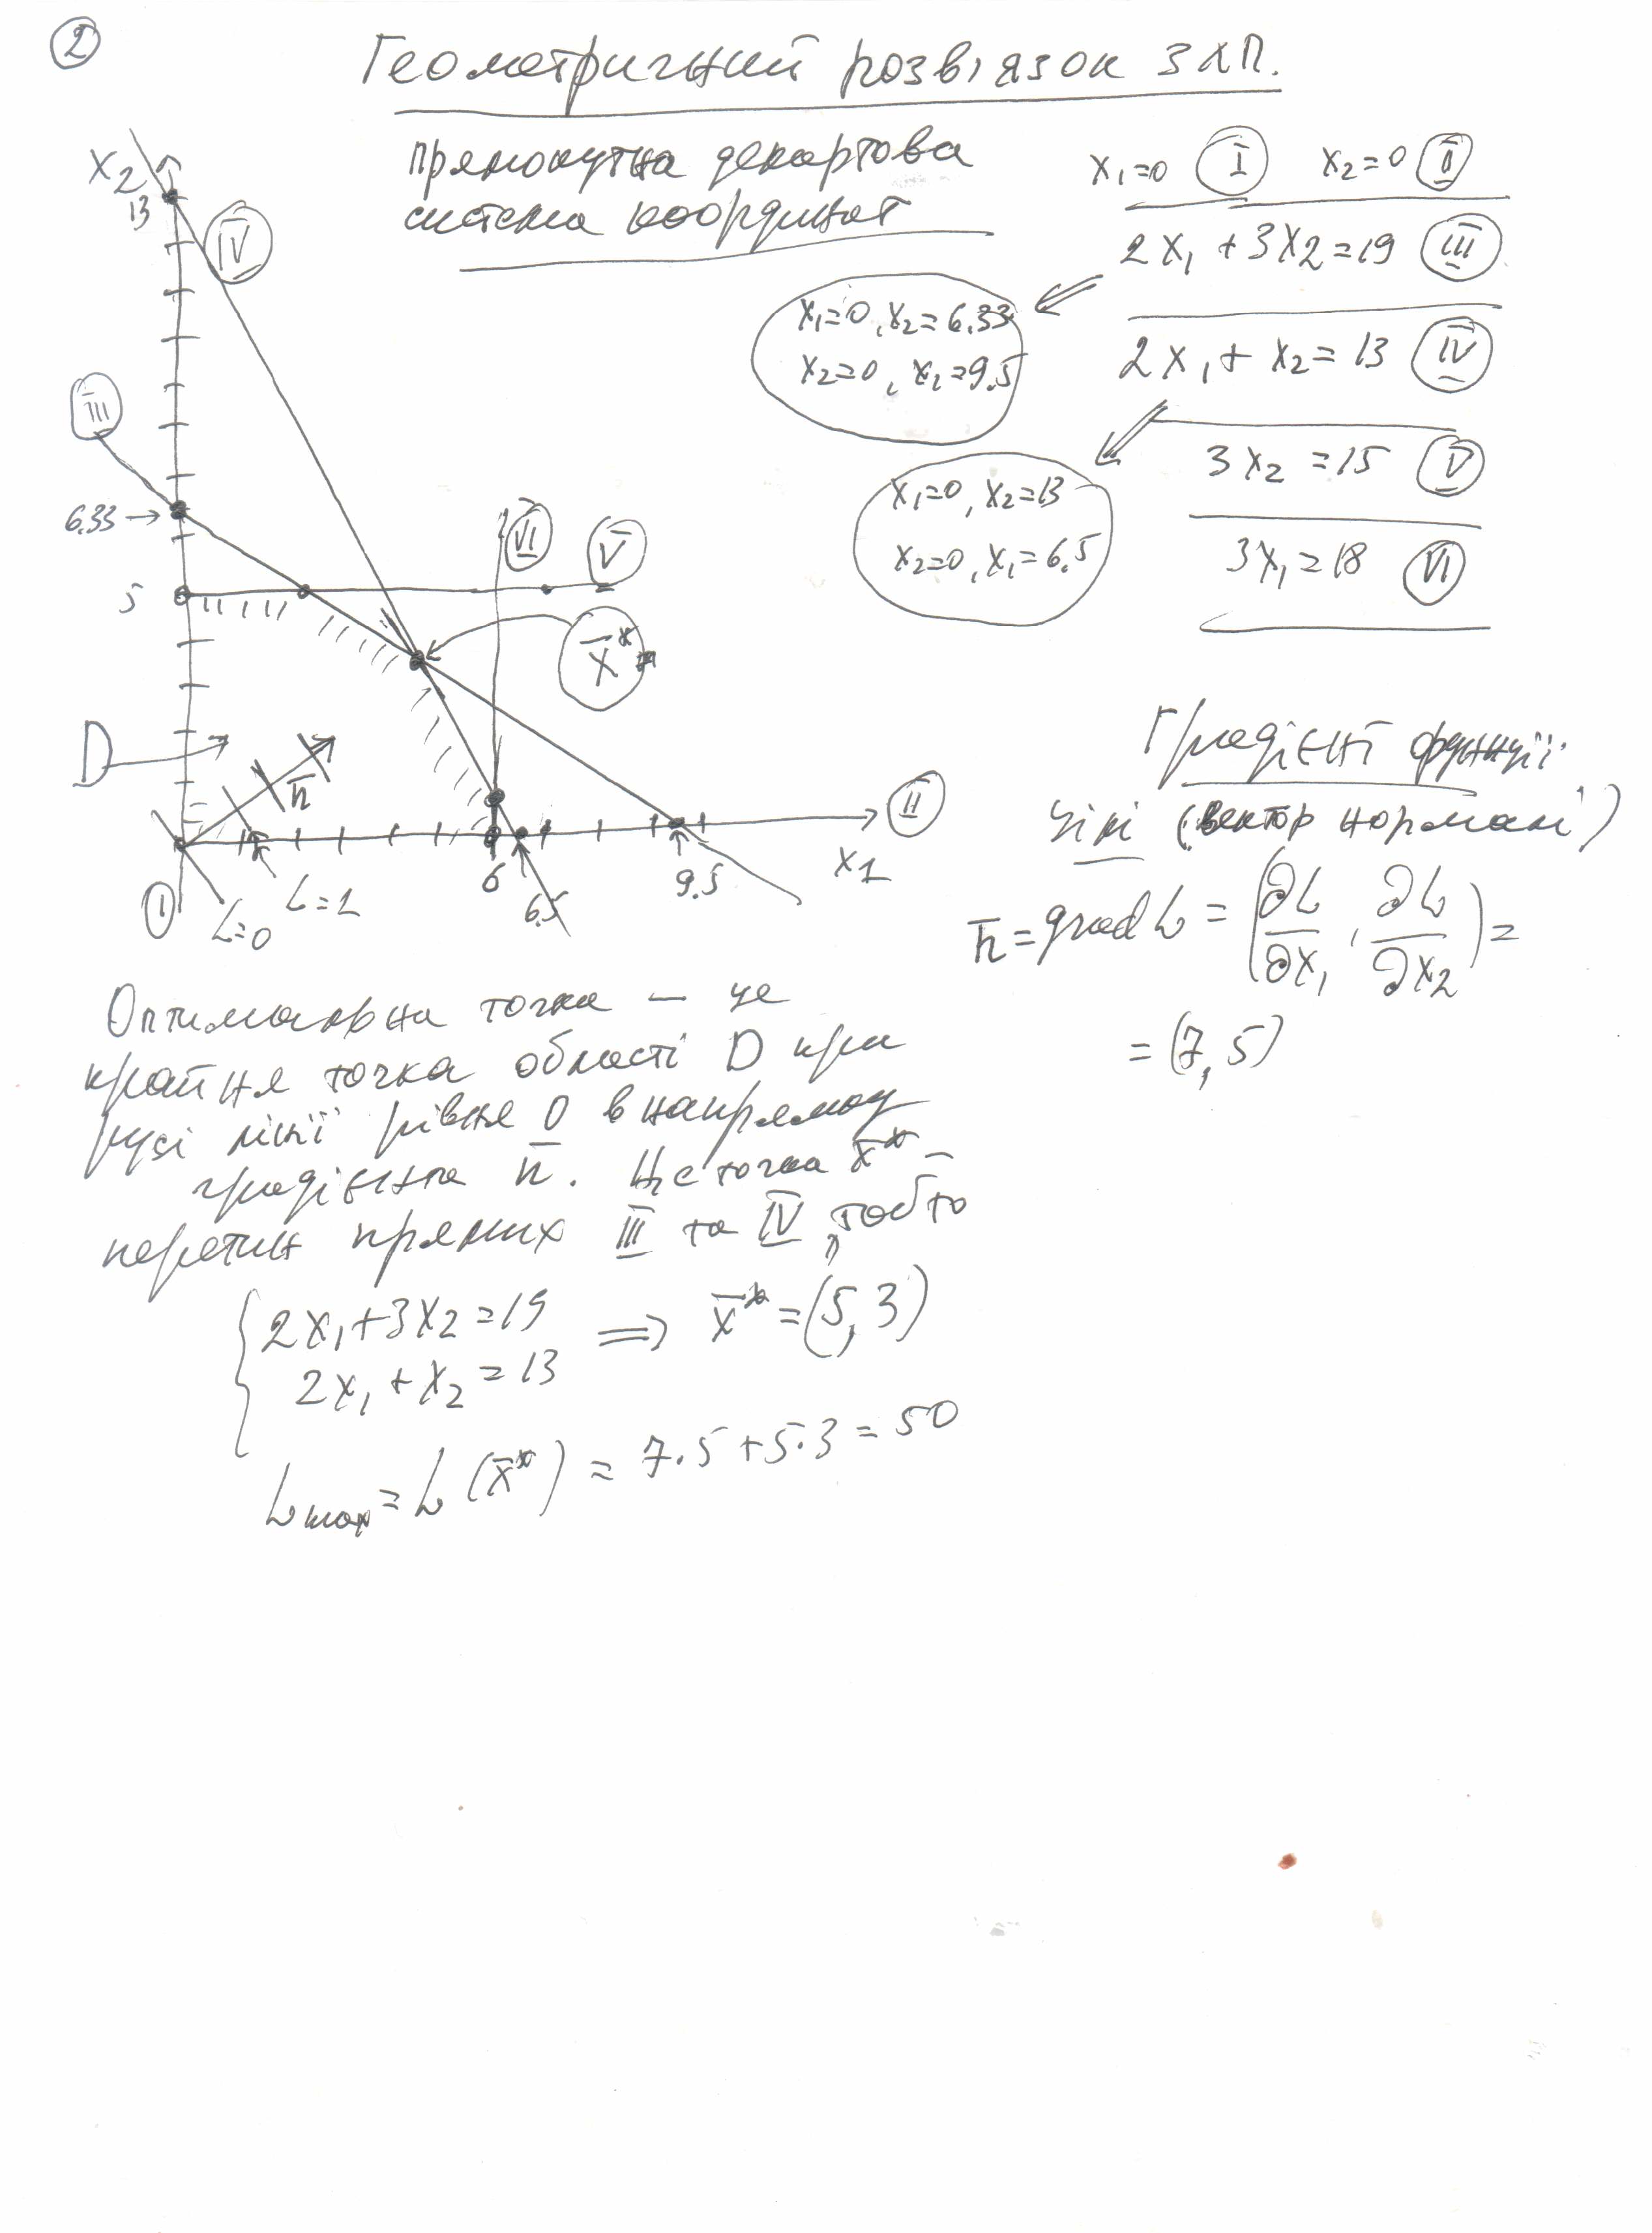 2
Геометричний розв'язок ЗЛП.
прямокутна декартова
система координат
x₁=0 I x₂=0 II
2x₁+3x₂=19 III
x₁=0, x₂=6.33
x₂=0, x₁=9.5
2x₁+x₂=13 IV
x₁=0, x₂=13
x₂=0, x₁=6.5
3x₂=15 V
3x₁=18 VI
x₂
13
IV
III
6.33→
5
VI
V
x̄*
D
n̄
II
x₁
6
6.5
9.5
I
L=0
L=1
Градієнт функції
цілі (вектор нормалі)
n̄=grad L=(∂L/∂x₁, ∂L/∂x₂)=
=(7, 5)
Оптимальна точка — це
крайня точка області D при
русі лінії рівня 0 в напрямку
градієнта n̄. Це точка x̄* –
перетин прямих III та IV, тобто
{2x₁+3x₂=19
2x₁+x₂=13 ⟹ x̄*=(5, 3)
Lmax=L(x̄*)=7·5+5·3=50